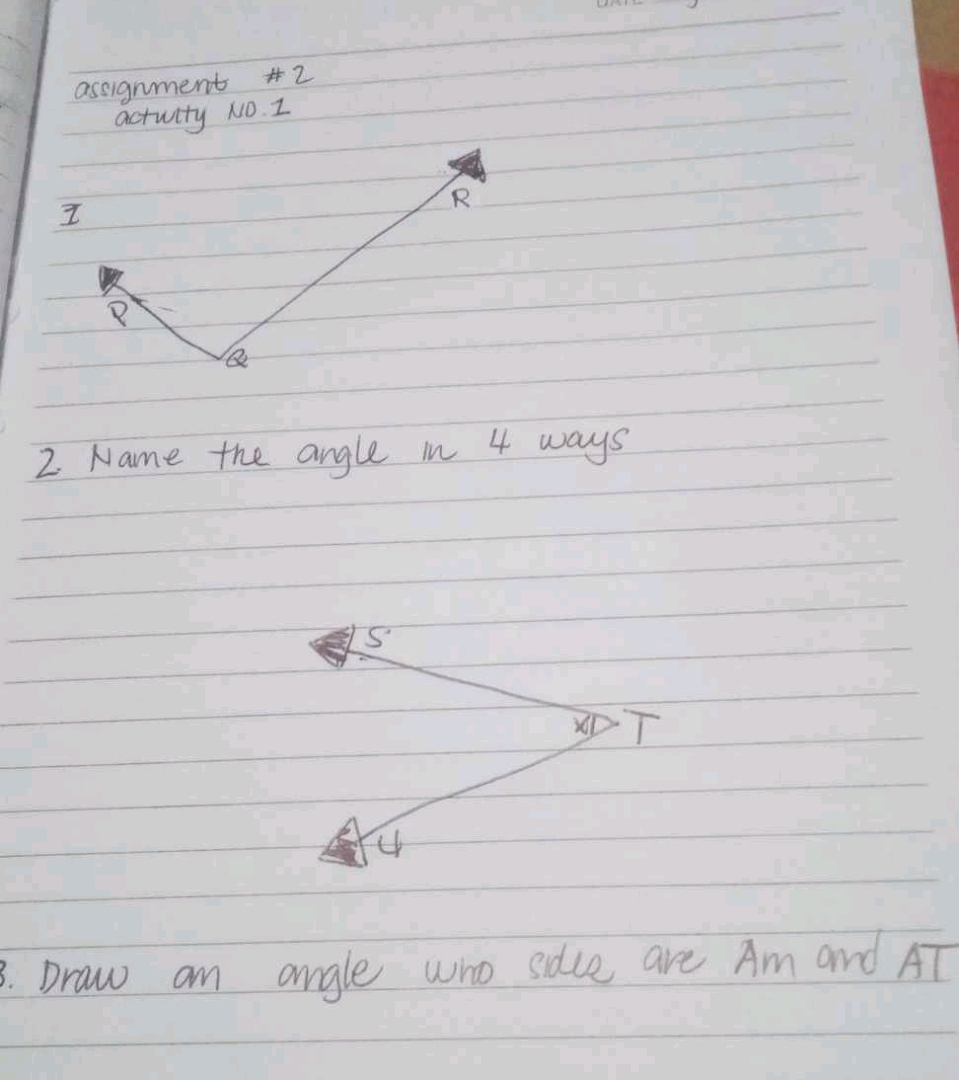 assignment #2
activity NO.1
1
R
P
Q
2. Name the angle in 4 ways
S
T
U
3. Draw an angle who sides are Am and AT